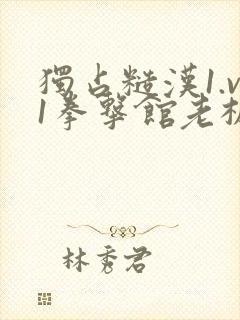 獨占糙漢1.v
1拳擊館老板
林秀君